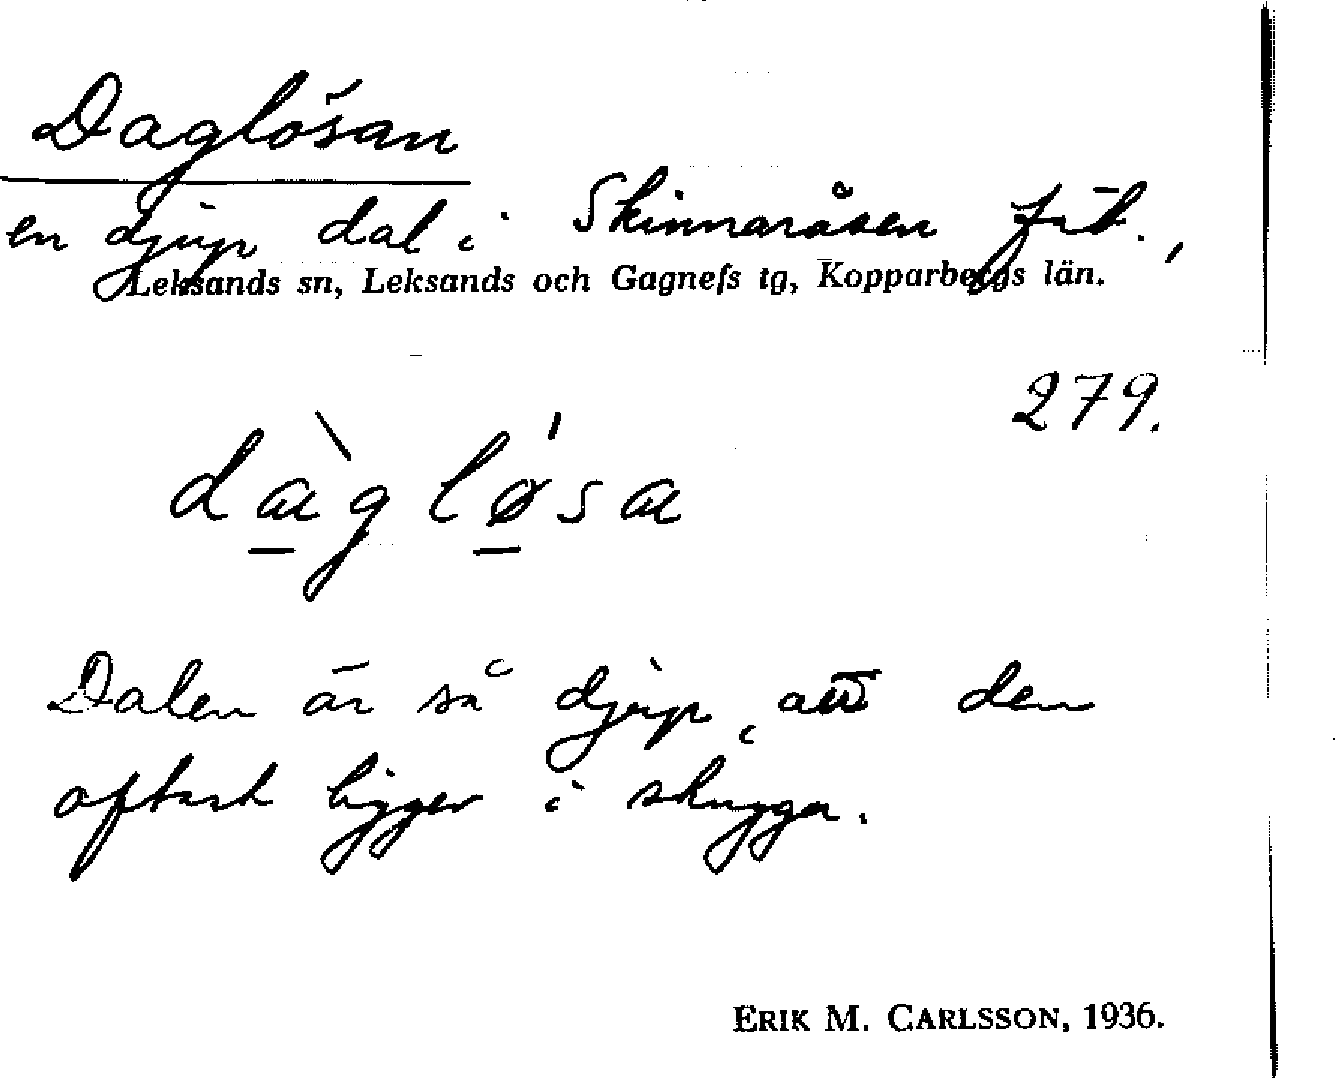 Daglösan
en djup dal i Skinnaråsen fäb.,
Leksands sn, Leksands och Gagnefs tg, Kopparbergs län.
279.
dàgløsa
Dalen är så djup, att den
oftast ligger i skugga.
ERIK M. CARLSSON, 1936.